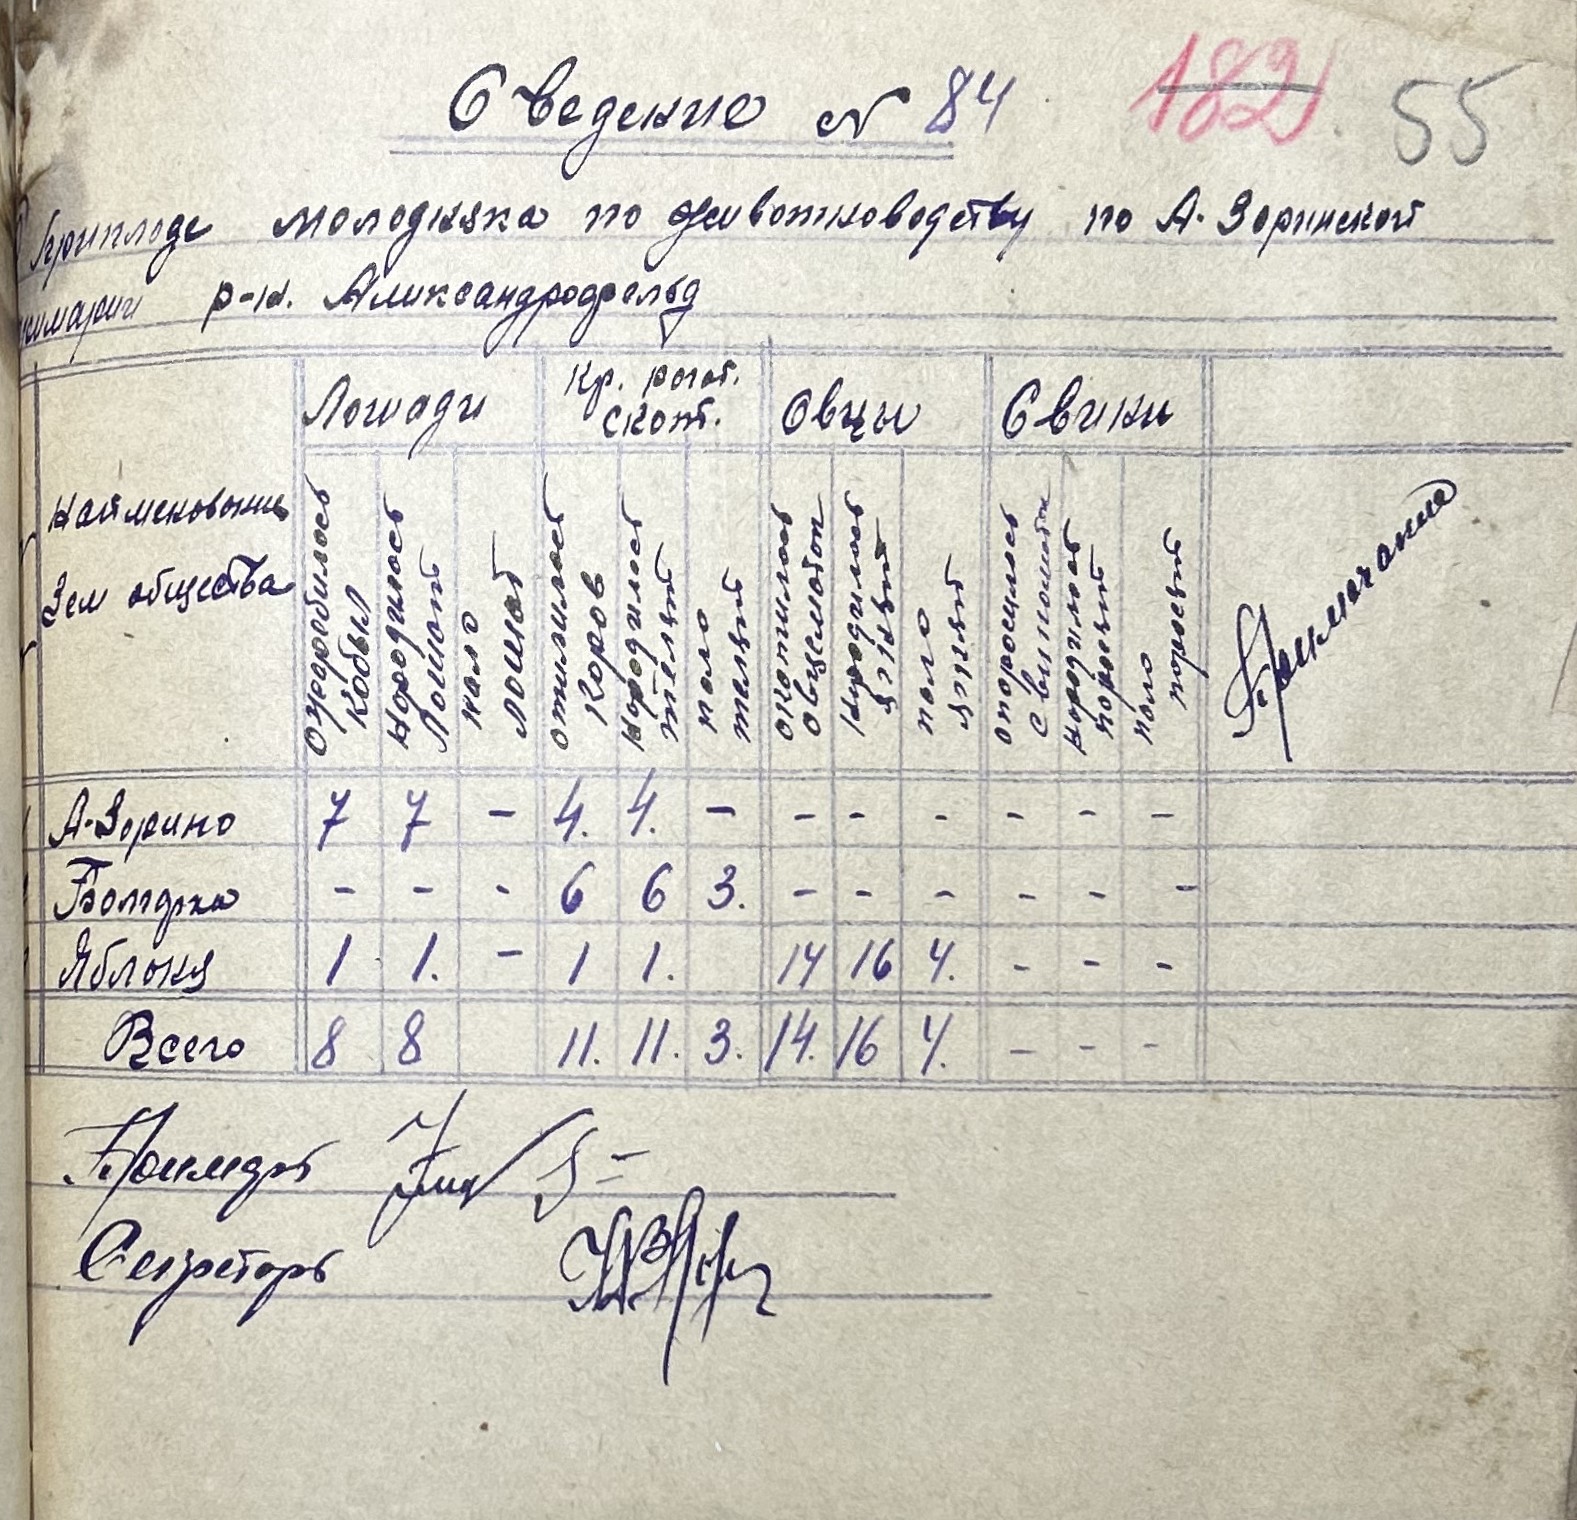 Сведение № 84
182 55
О приплоде молодняка по животноводству по А-Зоринской
примарии р-н. Александрофельд
Наименование Зем общества
Лошади
Кр. рогат. скот.
Овцы
Свини
Примечание
Ожеребилось кобыл
Народилось Лошат
пало лошат
отилилось Коров
Народилось телят
пало телят
окотилось овцематок
Народилось ягнят
пало ягнят
опоросилось свиноматок
народилось поросят
пало поросят
А-Зорино 7 7 - 4. 4. - - - - - - -
- - - 6 6 3. - - - - - -
Яблоня 1 1. - 1 1. 14 16 4. - - -
Всего 8 8 11. 11. 3. 14. 16 4. - - -
Примарь
Секретарь